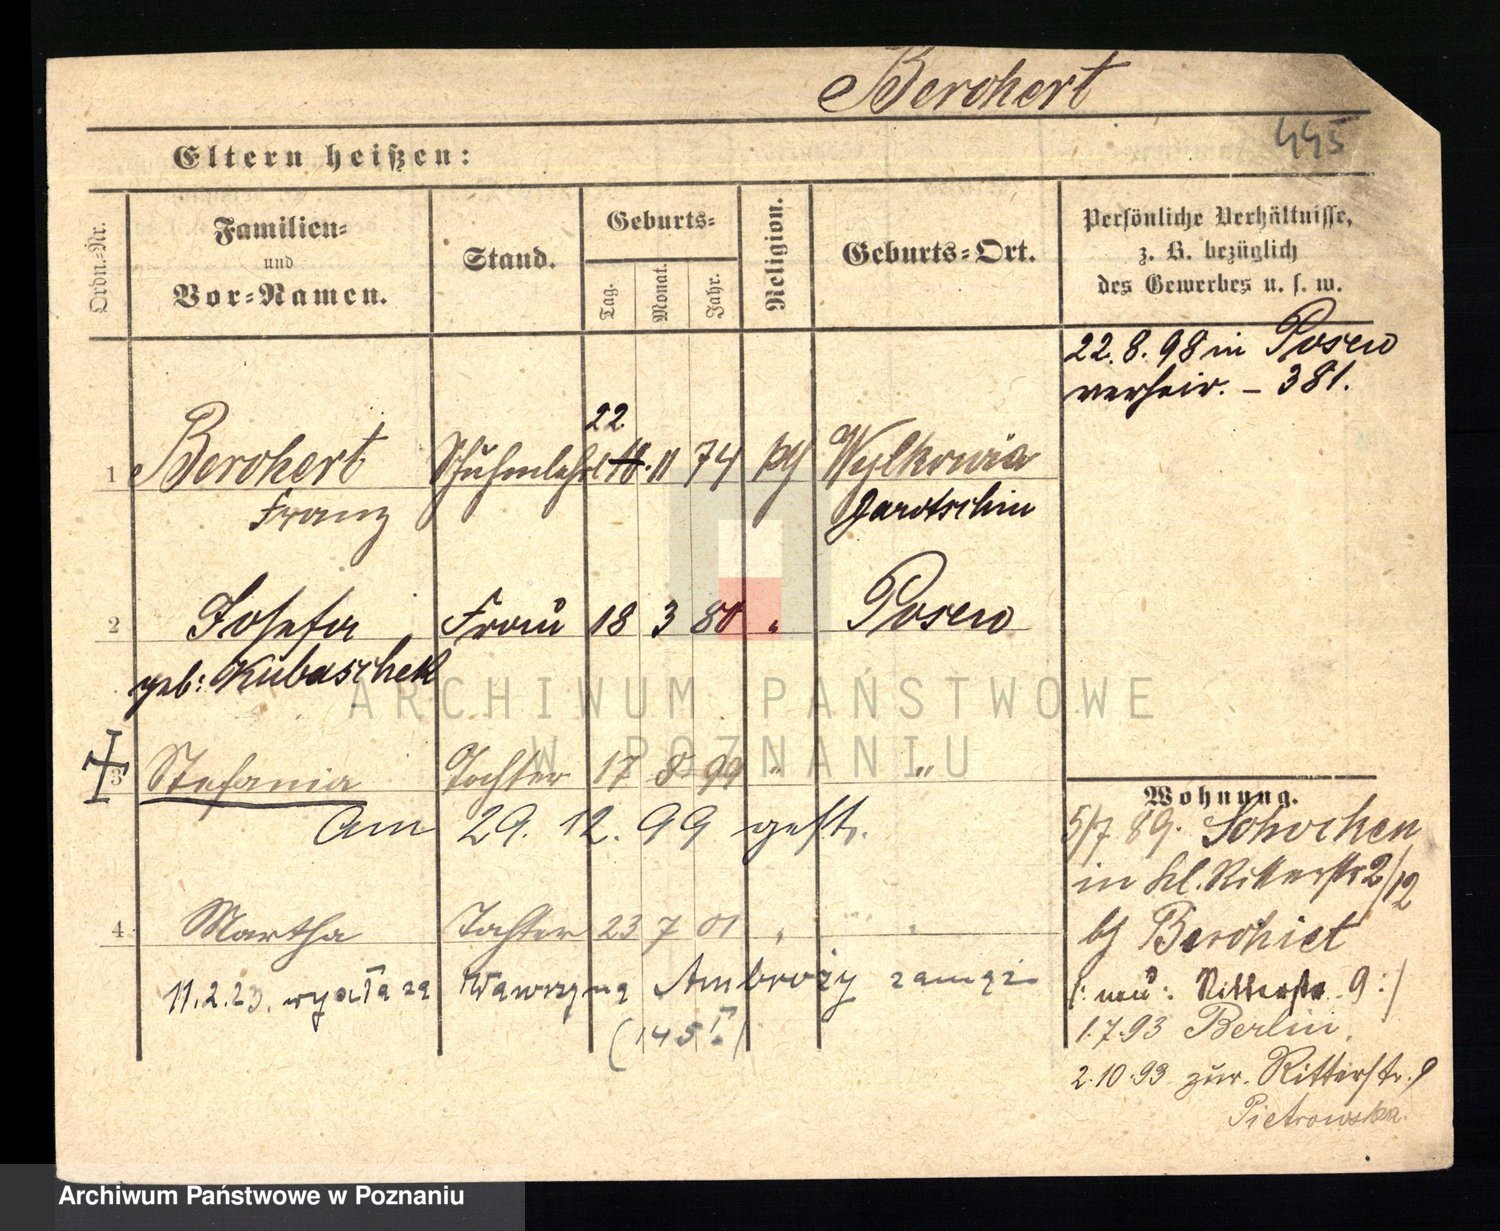 Berohert
445
Eltern heißen:
Ordn.=Nr.
Familien=
und
Vor=Namen.
Stand.
Geburts=
Tag.
Monat.
Jahr.
Religion.
Geburts=Ort.
Persönliche Verhältnisse,
z. B. bezüglich
des Gewerbes u. s. w.
22.8.98 in Posen
verheir. – 381.
22.
1 Berohert Schuhmlehrl 18. 11 74 Wylkowia
Franz Jarotschin
2 Josefa Frau 18 3 80 " Posen
geb: Kubaschek
3 Stefania Tochter 17 8 99 " "
am 29. 12. 99 gest.
4 Martha Tochter 23 7 01 " "
11.2.23. wyszła za Wawrzyna Ambroży zamąż
(145 I.)
Wohnung.
5/7 89. Schochen
in Kl. Ritterstr 2/12
bei Berohiet
(: neu: Ritterstr. 9 :)
1.7.93 Berlin.
2.10.93 zur. Ritterstr. 9
Pietrowska.
ARCHIWUM PAŃSTWOWE
W POZNANIU
Archiwum Państwowe w Poznaniu